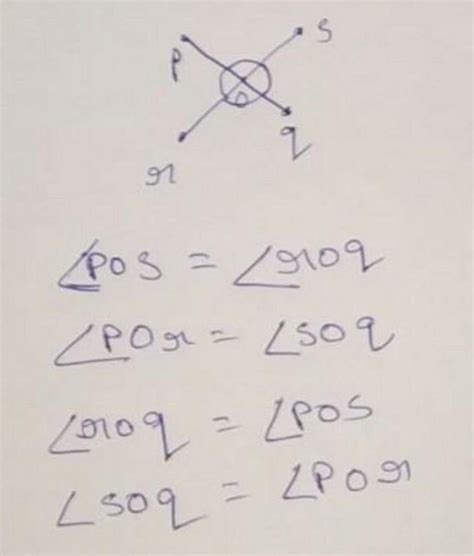 p s
o
r q
∠POS = ∠roq
∠POr = ∠soq
∠roq = ∠POS
∠soq = ∠POr